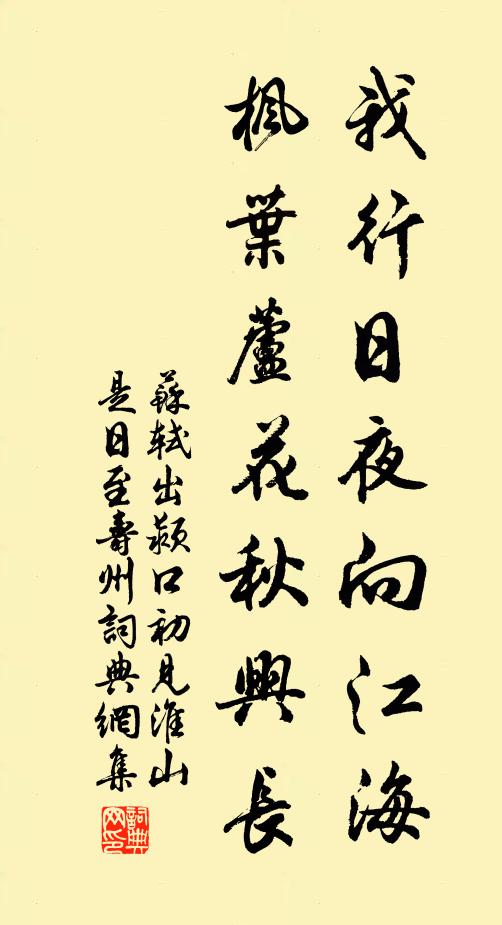 我行日夜向江海
楓葉蘆花秋興長
蘇軾出潁口初見淮山
是日至壽州詞典網集
詞典
网印